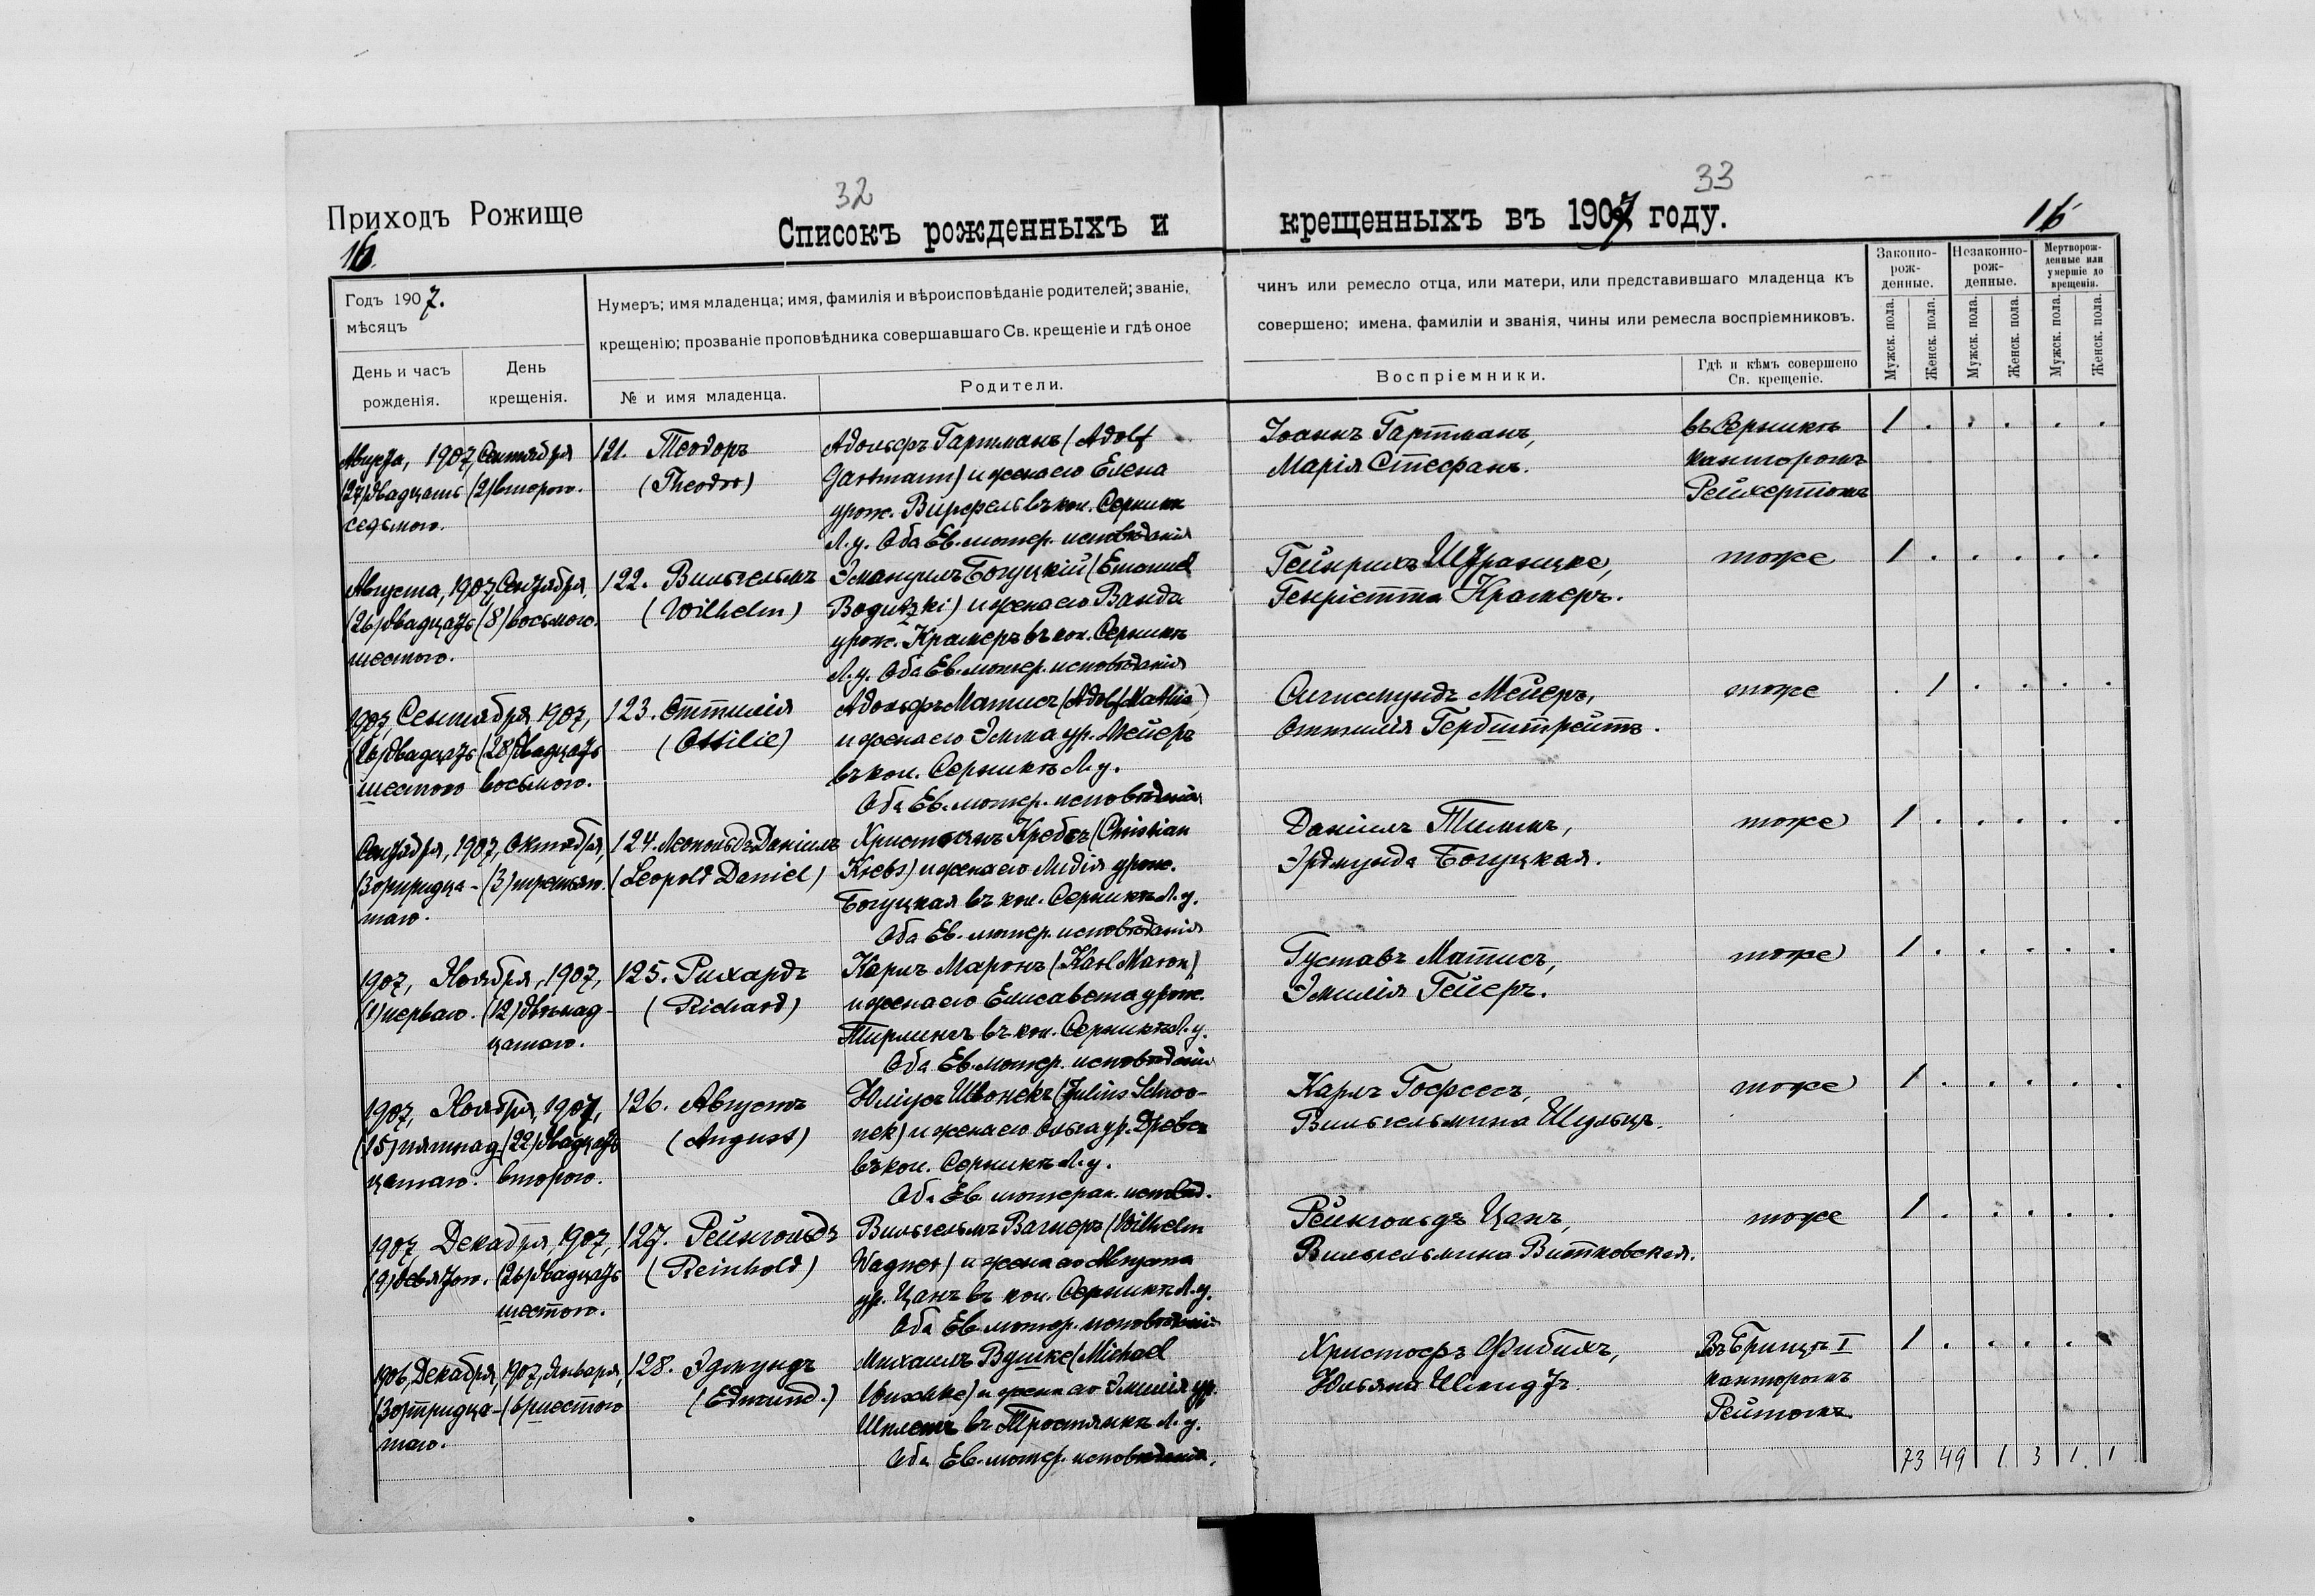 32
33
Приходъ Рожище
Списокъ рожденныхъ и крещенныхъ въ 1907 году.
16.
16
Годъ 1907.
мѣсяцъ
День и часъ рожденія.
День крещенія.
Нумеръ; имя младенца; имя, фамилія и вѣроисповѣданіе родителей; званіе,
крещенію; прозваніе проповѣдника совершавшаго Св. крещеніе и гдѣ оное
№ и имя младенца.
Родители.
чинъ или ремесло отца, или матери, или представившаго младенца къ
совершено; имена, фамиліи и званія, чины или ремесла воспріемниковъ.
Воспріемники.
Гдѣ и кѣмъ совершено
Св. крещеніе.
Законно-
рож-
денные.
Незаконно-
рож-
денные.
Мертворож-
денные или
умершіе до
крещенія.
Мужск. пола.
Женск. пола.
Мужск. пола.
Женск. пола.
Мужск. пола.
Женск. пола.
Августа, 1907, Сентября
(27) двадцать (2) второго.
седьмого.
121. Теодоръ
(Theodor)
Адольфъ Гартманъ (Adolf
Hartmann) и жена его Елена
урож. Вирфель въ кол. Серникѣ
Л. у. Оба Ев. лютер. исповѣданія
Іоаннъ Гартманъ,
Марія Стефанъ.
въ Серникѣ
канторомъ
Рейхертомъ
1 . . . . .
Августа, 1907, Сентября,
(26) двадцать (8) восьмого.
шестого.
122. Вильгельмъ
(Wilhelm)
Эмануилъ Богуцкій (Emanuel
Bogutzki) и жена его Ванда
урож. Крамеръ въ кол. Серникѣ
Л. у. Оба Ев. лютер. исповѣданія
Гейнрихъ
Генріетта Крамеръ.
тоже
1 . . . . .
1907, Сентября 1907,
(26) двадцать (28) двадцать
шестого восьмого.
123. Оттилія
(Ottilie)
Адольфъ Матисъ (Adolf Mathis)
и жена его Эмма ур. Мейеръ
въ кол. Серникѣ Л. у.
Оба Ев. лютер. исповѣданія
Сигисмундъ Мейеръ,
Оттилія Гербштрейтъ.
тоже
. 1 . . . .
Сентября, 1907, Октября,
(30) тридца- (3) третьяго.
таго.
124. Леопольдъ Даніилъ
(Leopold Daniel)
Христіанъ Кребсъ (Christian
Krebs) и жена его Лидія урож.
Богуцкая въ кол. Серникѣ Л. у.
Оба Ев. лютер. исповѣданія
Даніилъ Тимъ,
Эрдмунда Богуцкая.
тоже
1 . . . . .
1907, Ноября, 1907,
(1) перваго. (12) двѣнад-
цатаго.
125. Рихардъ
(Richard)
Карлъ Маронъ (Karl Maron)
и жена его Елисавета урож.
Тирлингъ въ кол. Серникѣ Л. у.
Оба Ев. лютер. исповѣданія
Густавъ Матисъ,
Эмилія Гейеръ.
тоже
1 . . . . .
1907, Ноября, 1907,
(15) пятнад- (22) двадцать
цатаго. второго.
126. Августъ
(August)
Юліусъ Швонекъ (Julius Schwo-
nek) и жена его Ольга ур. Древсъ
въ кол. Серникѣ Л. у.
Оба Ев. лютеран. исповѣд.
Карлъ Гофесъ,
Вильгельмина Шульцъ.
тоже
1 . . . . .
1907 Декабря, 1907,
(9) девятого. (26) двадцать
шестого.
127. Рейнгольдъ
(Reinhold)
Вильгельмъ Вагнеръ (Wilhelm
Wagner) и жена его Августа
ур. Цанъ въ кол. Серникѣ Л. у.
Оба Ев. лютер. исповѣданія
Рейнгольдъ Цанъ,
Вильгельмина Витковская.
тоже
1 . . . . .
1906, Декабря, 1907, Января,
(30) тридца- (6) шестого
таго.
128. Эдмундъ
(Edmund.)
Михаилъ Вушке (Michael
Wuschke) и жена его Эмилія ур.
въ Тростянкѣ Л. у.
Оба Ев. лютер. исповѣданія.
Христофъ Фибихъ,
Юльяна Шмидтъ.
Въ Брищѣ I
канторомъ
Рейтомъ.
1 . . . . .
73 49 1 3 1. 1